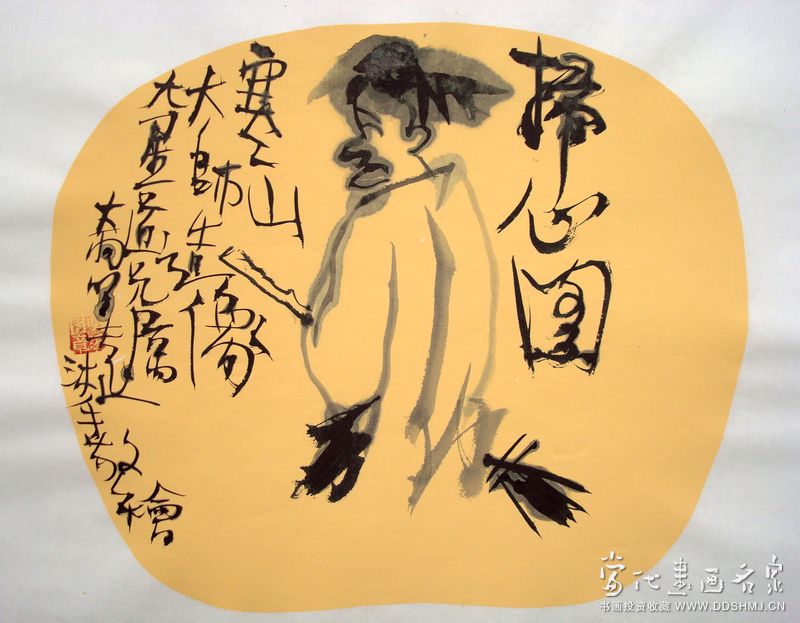 掃心圖
寒山
大師造像
道兄屬
沐手敬繪
當代書画名家
书画投资收藏 WWW.DDSHMJ.CN